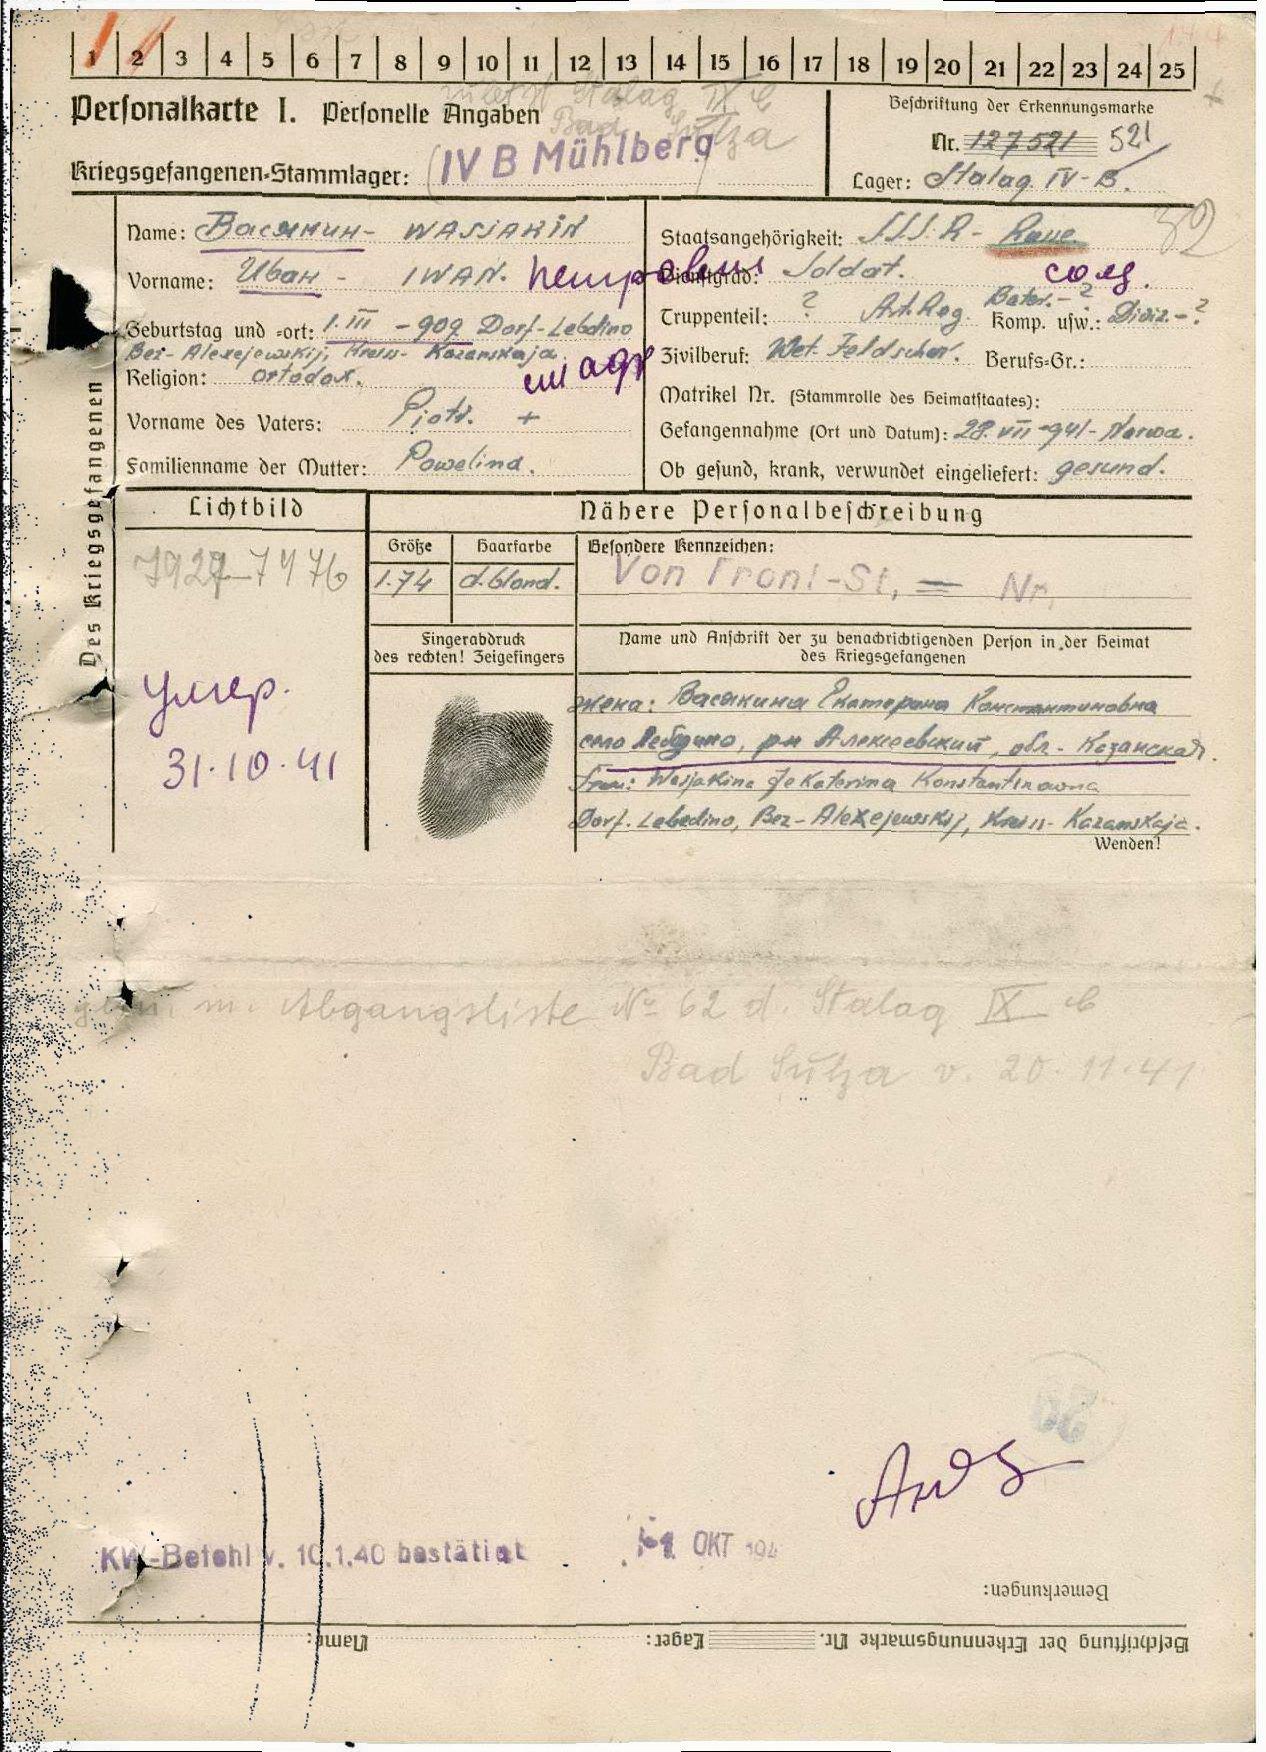 1 2 3 4 5 6 7 8 9 10 11 12 13 14 15 16 17 18 19 20 21 22 23 24 25
zuletzt Stalag IX C
Bad Sulza
Personalkarte I. Personelle Angaben
Beschriftung der Erkennungsmarke
Nr. 127521 521
Kriegsgefangenen-Stammlager: IV B Mühlberg
Lager: Stalag IV-B.
32
Des Kriegsgefangenen
Name: Васякин - WASJAKIN
Vorname: Иван - IWAN.
Geburtstag und -ort: 1.III - 909 Dorf-Lebdino
Bez- Alexejewskij, Kreis- Kazanskaja
Religion: ortodox.
Vorname des Vaters: Piotr. +
Familienname der Mutter: Pawelina.
Staatsangehörigkeit: SSSR -
Dienstgrad: Soldat. солд.
Truppenteil: ? Art. Reg. Bater.-? Komp. usw.: Diviz.-?
Zivilberuf: Wet. Feldscher. Berufs-Gr.:
Matrikel Nr. (Stammrolle des Heimatstaates):
Gefangennahme (Ort und Datum): 28.VII-941- Narwa.
Ob gesund, krank, verwundet eingeliefert: gesund.
Lichtbild
Nähere Personalbeschreibung
Größe
1.74
Haarfarbe
d.blond.
Besondere Kennzeichen:
Von Front-St. = Nr.
Fingerabdruck
des rechten! Zeigefingers
Name und Anschrift der zu benachrichtigenden Person in der Heimat
des Kriegsgefangenen
умер.
31.10.41
жена: Васякина Екатерина Константиновна
село Лебдино, рн Алексеевский, обл- Казанская.
Frau: Wasjakina Jekaterina Konstantinowna
Dorf. Lebedino, Bez- Alexejewskij, Kreis- Kazanskaja.
Wenden!
Abgangsliste No 62 d Stalag IX C
Bad Sulza v. 20.11.41
KW-Befehl v. 10.1.40 bestätigt
OKT 194
Bemerkungen:
Beschriftung der Erkennungsmarke Nr. Lager: Name: